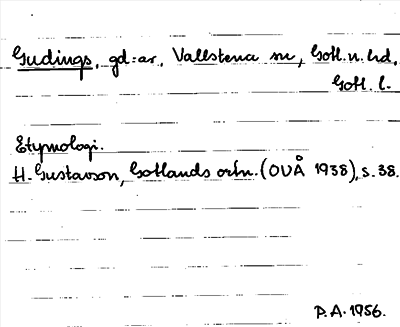 Gudings, gd:ar, Vallstena sn, Gotl. n. hd,
Gotl. l.
Etymologi.
H. Gustavson, Gotlands ortn. (OUÅ 1938), s. 38.
P.A. 1956.